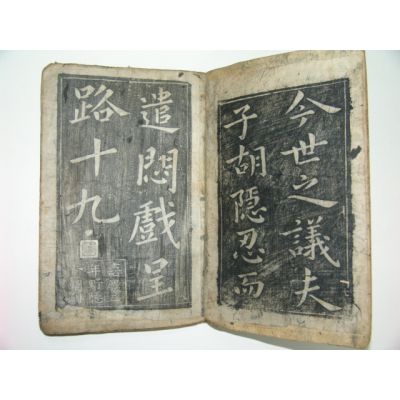 今世之議夫
子胡隱忍而
遣悶戲呈
路十九